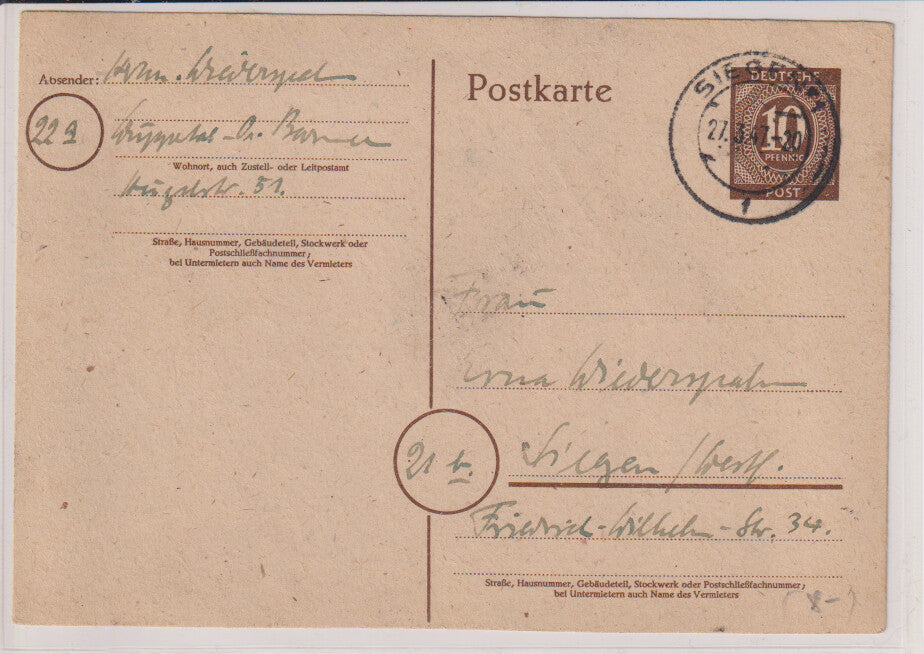 Absender: Wiederspahn
22a
Wuppertal-
Barmen
Wohnort, auch Zustell- oder Leitpostamt
Str. 51.
Straße, Hausnummer, Gebäudeteil, Stockwerk oder
Postschließfachnummer;
bei Untermietern auch Name des Vermieters
Postkarte
DEUTSCHE
10
PFENNIG
POST
27.3.47.-20
1
Frau
Erna Wiederspahn
21 b.
Siegen /Westf.
Friedrich-Wilhelm-Str. 34.
Straße, Hausnummer, Gebäudeteil, Stockwerk oder Postschließfachnummer;
bei Untermietern auch Name des Vermieters